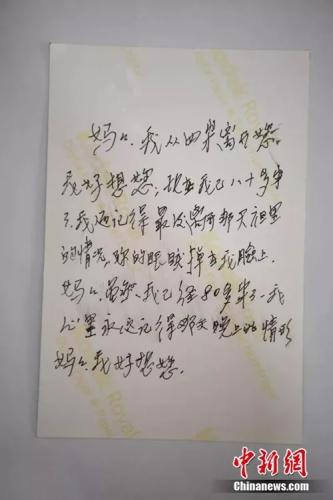 妈妈、我从四岁离开您。
我好想您，现在我已八十多岁
了、我还记得最后离开那天夜里
的情况，你的眼泪掉在我脸上.
妈妈、虽然、我已经80多岁了、我
心里永远记得那天晚上的情形
妈妈、我好想您.
Kodak Royal
中新网
Chinanews.com